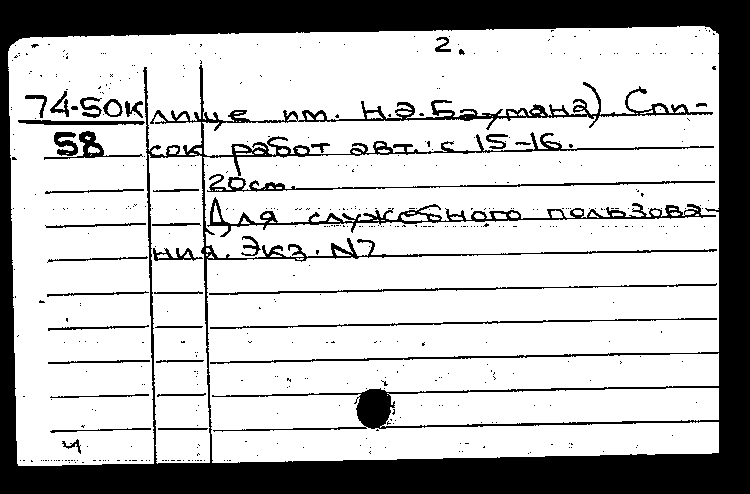 2.
74-50к лище им. Н.Э.Баумана) Спи-
58 сок работ авт.: с 15-16.
20см.
Для служебного пользова-
ния. Экз. N7.
ч